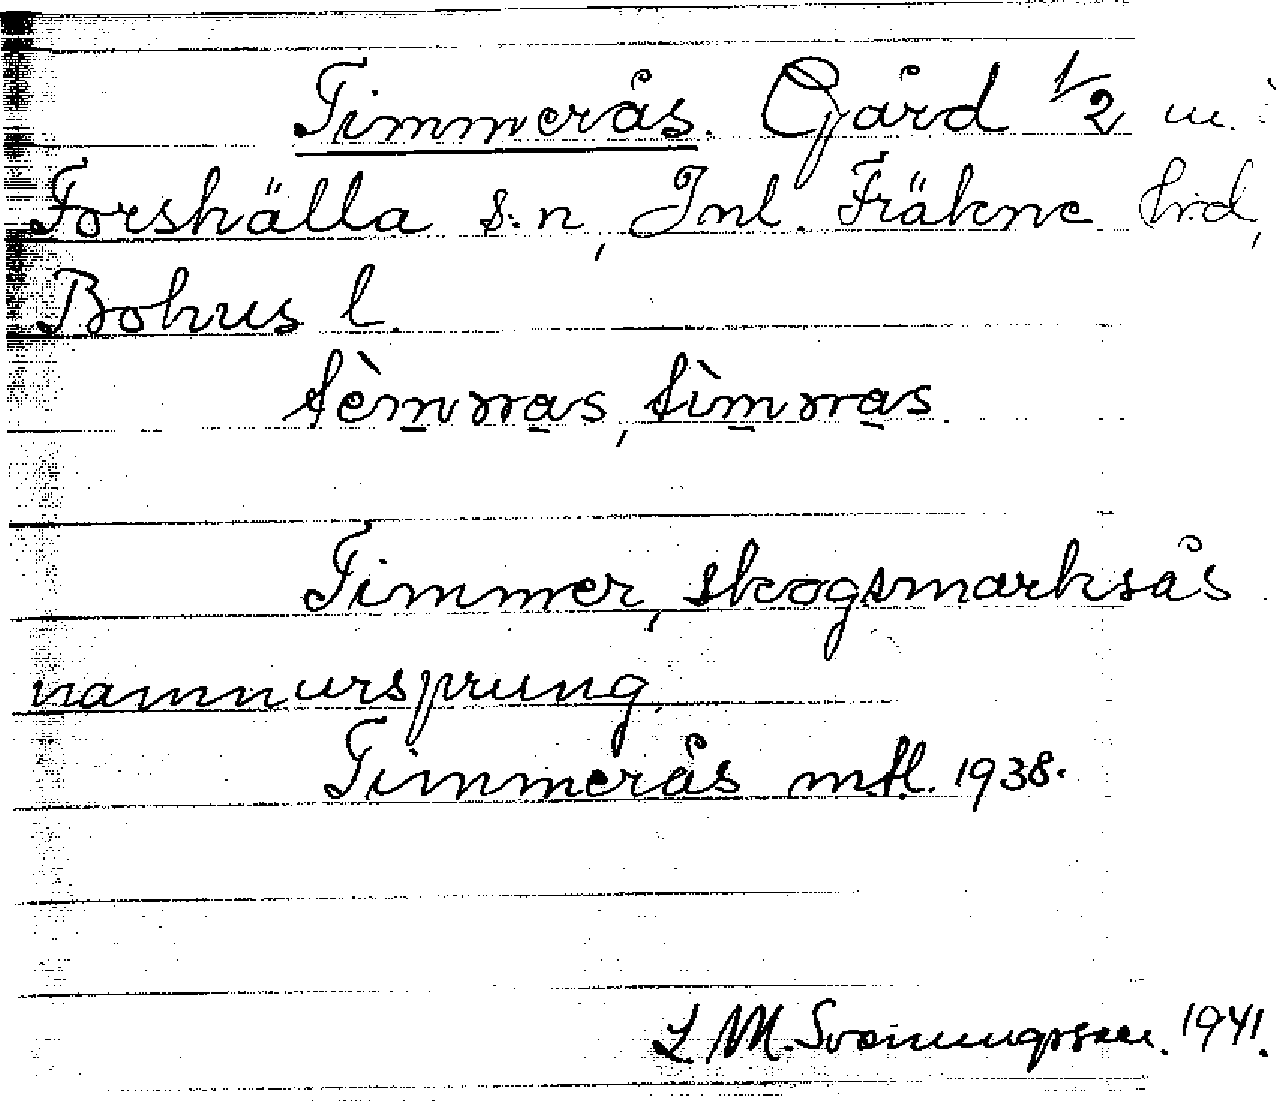 Timmerås. Gård 1/2 m.
Forshälla s:n, Inl. Fräkne hrd,
Bohus l.
tèm̲rra̲s, tìm̲rra̲s.
Timmer, skogsmarksås
namnursprung.
Timmerås mtl. 1938.
L M. Svenungsson. 1941.